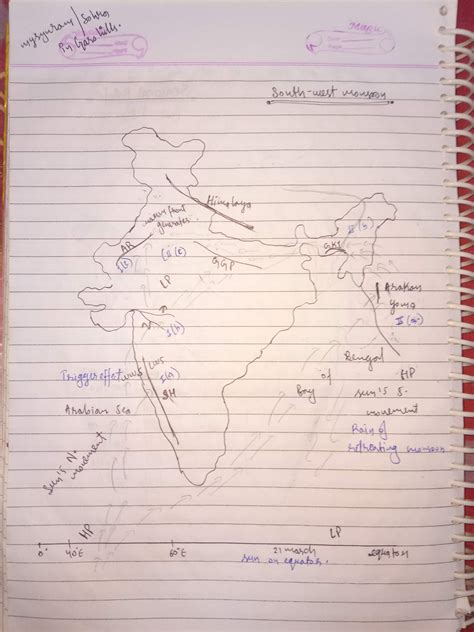 Sohra
in Garo hills.
South-west monsoon
Himalaya
warm front
generates.
AR
I(c)
II(c)
GGP
LP
GKJ
II(b)
Arakan
yoma
II(a)
I(b)
WWS
LWS
I(a)
SH
Trigger effect
Arabian Sea
Bay of Bengal
HP
sun's S.
movement
Rain of
retreating monsoon
Sun's N.
movement
HP
LP
0°
40°E
60°E
21 march
equator
sun on equator.